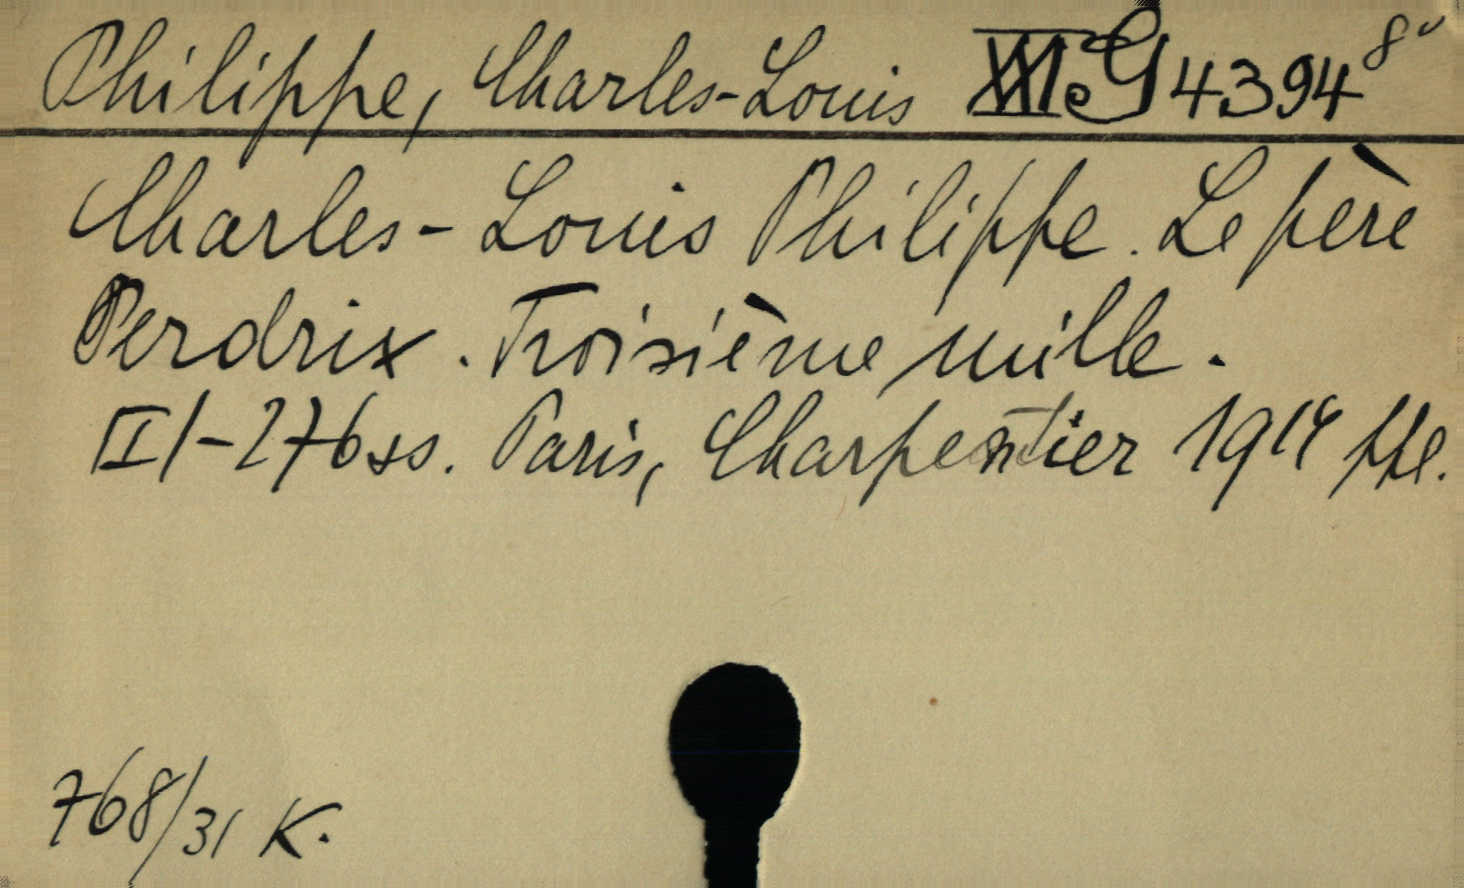 Philippe, Charles-Louis XXI e G 4394 8°
Charles-Louis Philippe. Le père
Perdrix. Troisième mille.
II/-276 ss. Paris, Charpentier 1914 ppl.
768/31 K.